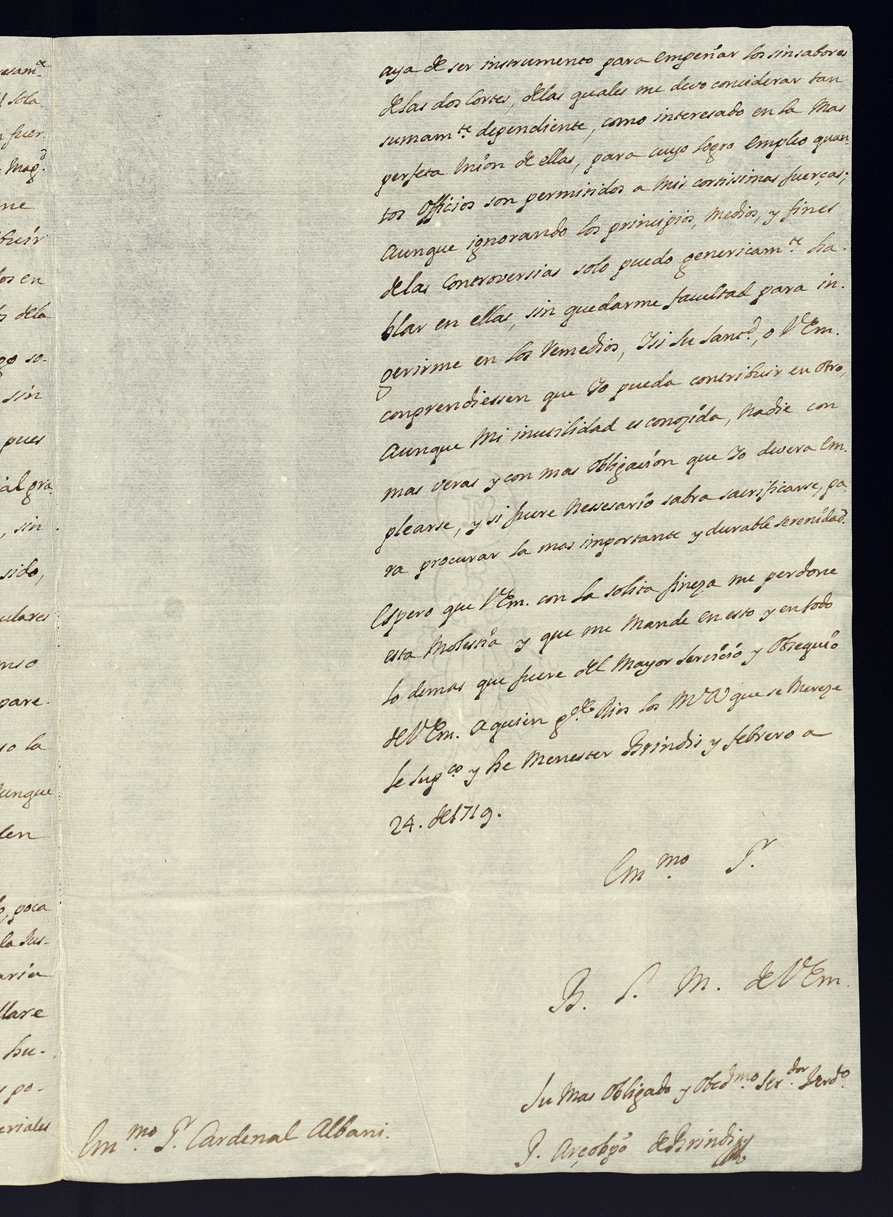 esam.te
l sola
fuer
Mag.d
me
buir
los en
s dela
go so-
sin
pues
ial gra.
, sin
sido,
culares
nso
pare.
so la
Aunque
den
, poca
la Jus-
aria
llare
hu-
y po-
eriales
aya de ser instrumento para empeñar los sinsabores
de las dos Cortes, delas quales me devo considerar tan
sumam.te dependiente, como interesado en la mas
perfeta Unión de ellas, para cuyo logro empleo quan
tos Officios son permitidos a Mis cortissimas fuerças;
Aunque ignorando los principios, Medios, y fines
delas Controversias solo puedo genericam.te ha-
blar en ellas, sin quedarme facultad para in-
gerirme en los Remedios, Y si Su Sant.d, o V. Em.
conprendiessen que Yo pueda contribuir en otro,
Aunque Mi inutilidad es conozida, Nadie con
mas veras y con mas obligación que Yo devera Em-
plearse, y si fuere Nessesario sabra sacrificarse, pa-
ra procurar la mas importante y durable serenidad.
Espero que V. Em. con la solita fineza me perdone
esta Molestia y que me Mande en esto y en todo
lo demas que fuere del Mayor Servicio y Obsequio
de V. Em. Aquien g.de Dios los M.s A.s que se Mereze
le sup.co y he Menester Brindis y febrero a
24. de 1719.
Em.mo S.r
B. S. M. de V. Em.
Su Mas Obligado y Obed.mo Ser.dor
P. Arçobpo de Brindisi
Em.mo S.r Cardenal Albani.